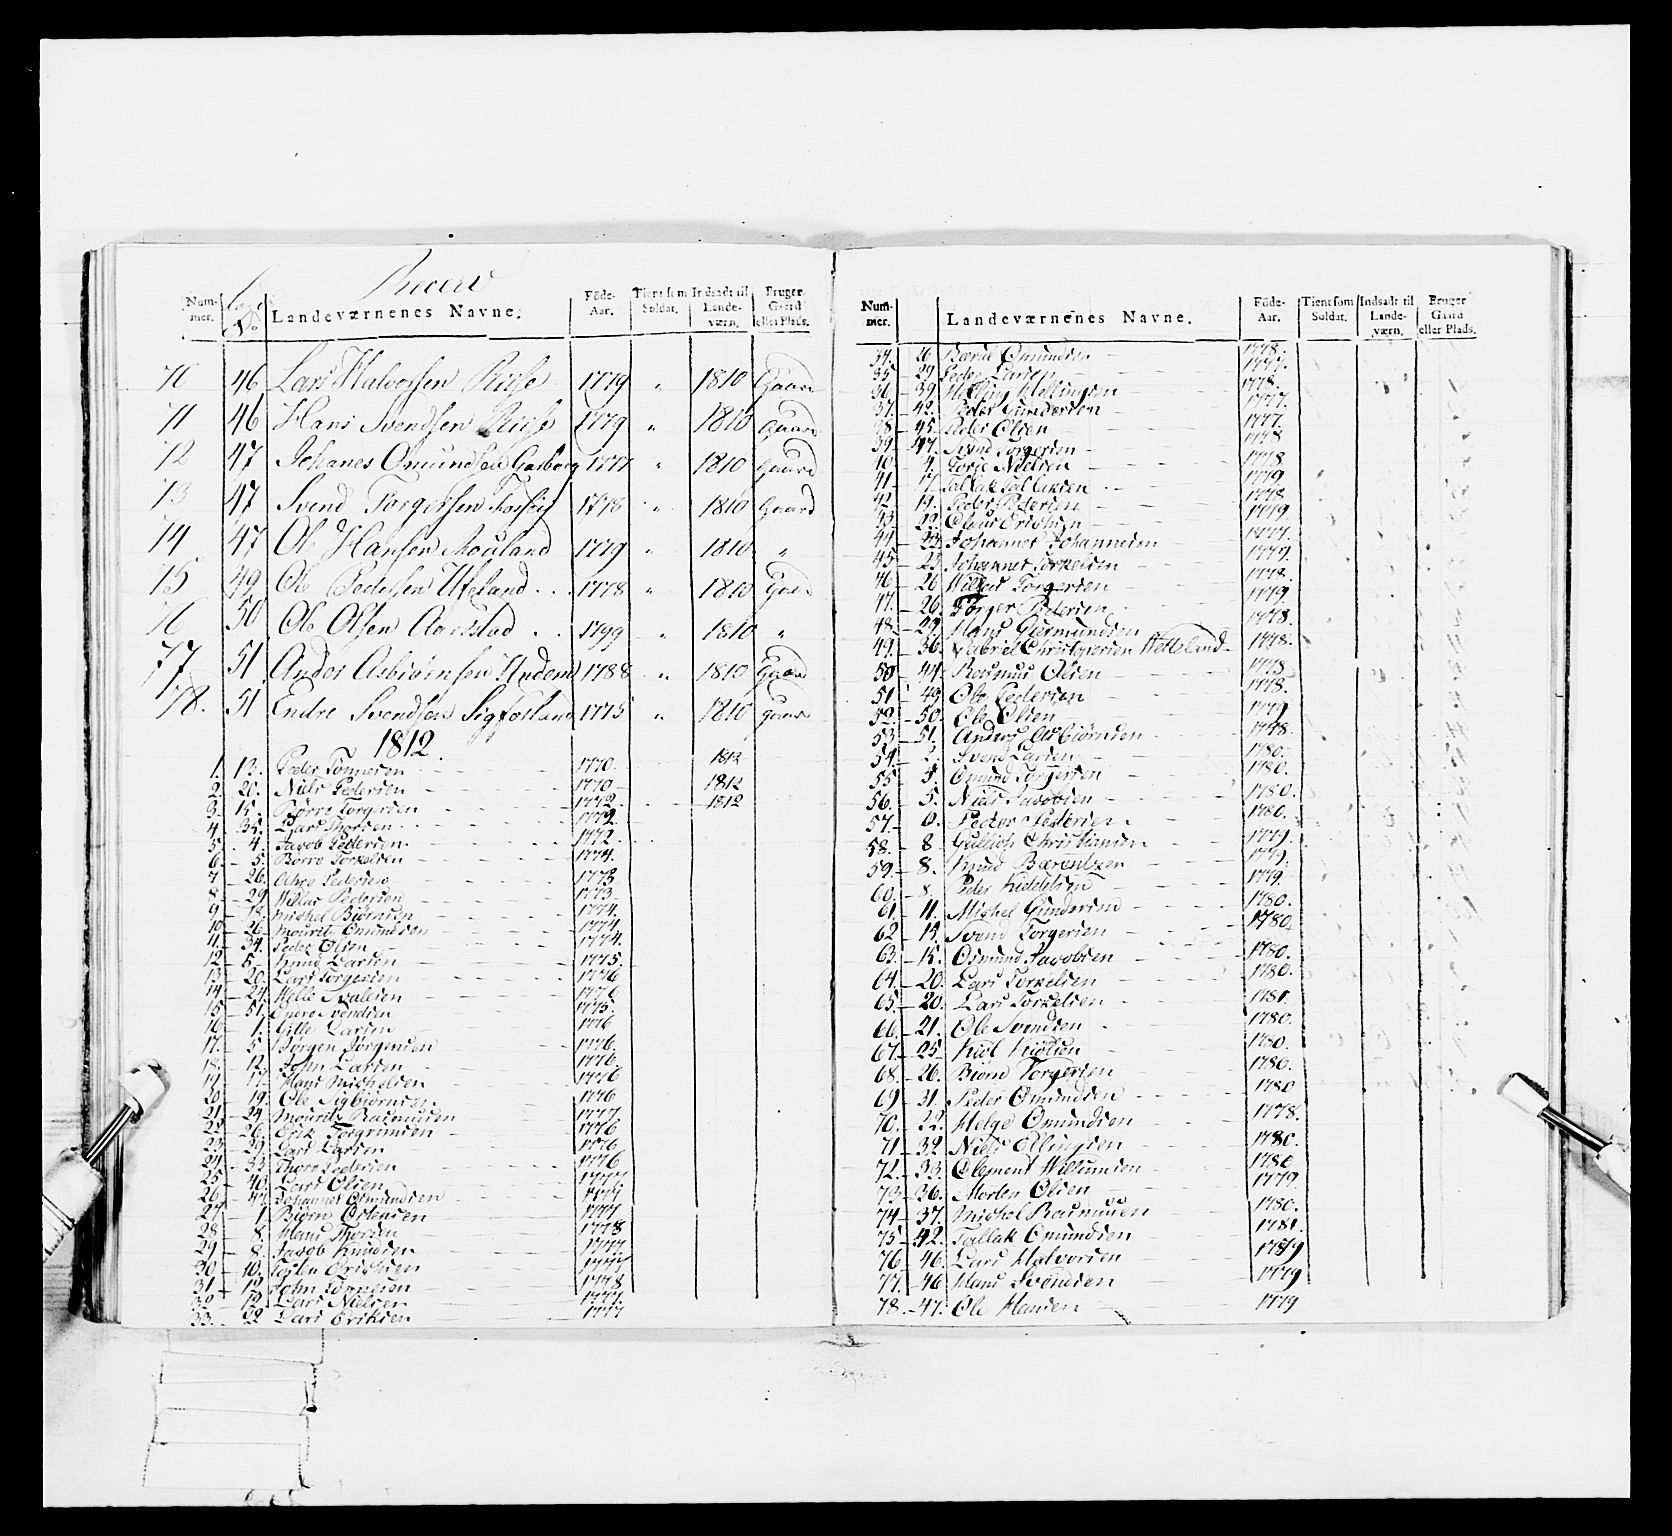 Reserv
Num-mer. Lægd No Landeværnenes Navne. Föde-Aar. Tient som Soldat. Indsadt til Lande-værn. Bruger Gaard eller Plads.
70 46 Lars Halvorsen Riise 1779 " 1810 Gaard
71 46 Hans Svendsen Riise 1779 " 1810 Gaard
72 47 Johanes Omundsen 1777 " 1810 Gaard
73 47 Svend Torgersen 1778 " 1810 Gaard
74 47 Ole Hansen Mouland 1779 " 1810 "
75 49 Ole Pedersen Ufsland 1778 " 1810 Gaard
76 50 Ole Olsen Aarstad 1799 " 1810 "
77 51 Ander Asbiørnsen 1788 " 1810 Gaard
78. 51 Endre Svendsen Sigfosland 1775 " 1810 Gaard
1812.
1. 13. Peder Tønnesen 1770. 1812
2. 20. Niels Pedersen 1770 1812
3. 15. Børre Torgersen 1772. 1812
4. 35. Lars Thorsen 1772.
5. 4. Jacob Pedersen 1772.
6 5. Børre Torkelsen 1774.
7 26. Pedersen 1773
8. 29 Pedersen 1773
9 18. Michel Biørnsen 1774.
10 26 Mourits Omundsen 1774
11. 34. Peder Olsen 1774.
12 5 Knud Larsen 1775.
13. 20. Lars Torgersen 1776
14 24. Helle Svalesen 1776
15 51. Svendsen 1775.
16 1. Gitle Larsen 1776
17. 5 Jørgen Jørgensen 1776.
18. 12. John Larsen 1776.
19 17. Hans Michelsen 1776
20 19. Ole Sigbiørnsen 1776
21 24. Mourits Rasmussen 1777.
22 26. Erik Torgrimsen 1776
23 29. Lars Larsen 1776.
24 33 Thore Pedersen 1776
25 40. Lars Olsen 1777.
26 47. Johannes Osmundsen 1777
27 1. Biørn Ostensen 1777
28 8. Hans Thorsen 1778
29 8. Jacob Knudsen 1777.
30 10. Tosten Erichsen 1777
31. 12. John Tønnesen 1778
32 12. Lars Nielsen 1777.
33. 22 Lars Eriksen 1777
Num-mer. Landeværnenes Navne. Föde-Aar. Tient som Soldat. Indsadt til Lande-værn. Bruger Gaard eller Plads.
34. 26 Baard Omundsen 1778.
35 29 Peder Larsen 1777.
36 39. Helling Hellingsen 1778.
37. 42. Peder Gundersen 1777.
38 45. Peder Olsen 1777.
39 47. Svend Torgersen 1778
40 4. Torje Nielsen 1778
41 17. Tallak Tallaksen 1779
42. 19. Peder Pedersen 1778
43. 22. Claus Erichsen 1779.
44 23. Johannes Johannesen 1777.
45 23. Johannes Torkelsen 1779.
46 26 Torgersen 1778.
47. 26. Torger Pedersen 1779
48. 29. Hans Giermundsen 1778.
49. 36. Gabriel Christophersen Wetteland 1778.
50 44. Rasmus Olsen 1778
51 49 Ole Pedersen 1778.
52. 50. Ole Olsen 1779
53 51. Anders Asbiørnsen 1788
54. Svend Larsen 1780.
55 5. Omund Torgersen 1780.
56. 5. Niels Jacobsen 1780.
57. 6. Peder Pedersen 1780.
58. 8 Gullich Christiansen 1779.
59. 8. Knud Bærentzen 1779.
60. 8. Peder Kiddelsen 1779.
61. 11. Michel Gundersen 1780.
62 15. Svend Torgersen 1780.
63. 15. Osmund Jacobsen 1780.
64. 20. Lars Torkelsen 1780.
65. 20. Lars Torkelsen 1781.
66. 21. Ole Svendsen 1780.
67. 25. Kiøl Kiølsen 1780.
68. 26. Biørn Torgersen 1780.
69 31. Peder Omundsen 1780
70. 22. Helge Omundsen 1778.
71 32 Niels Ellingsen 1780.
72. 33. Clement Willumsen 1780
73 36. Morten Olsen 1779
74 37. Michel Rasmusen 1780.
75 42. Tallak Omundsen 1781.
76 46. Lars Halvorsen 1779
77. 46 Hans Svendsen 1779
78. 47. Ole Hansen 1779